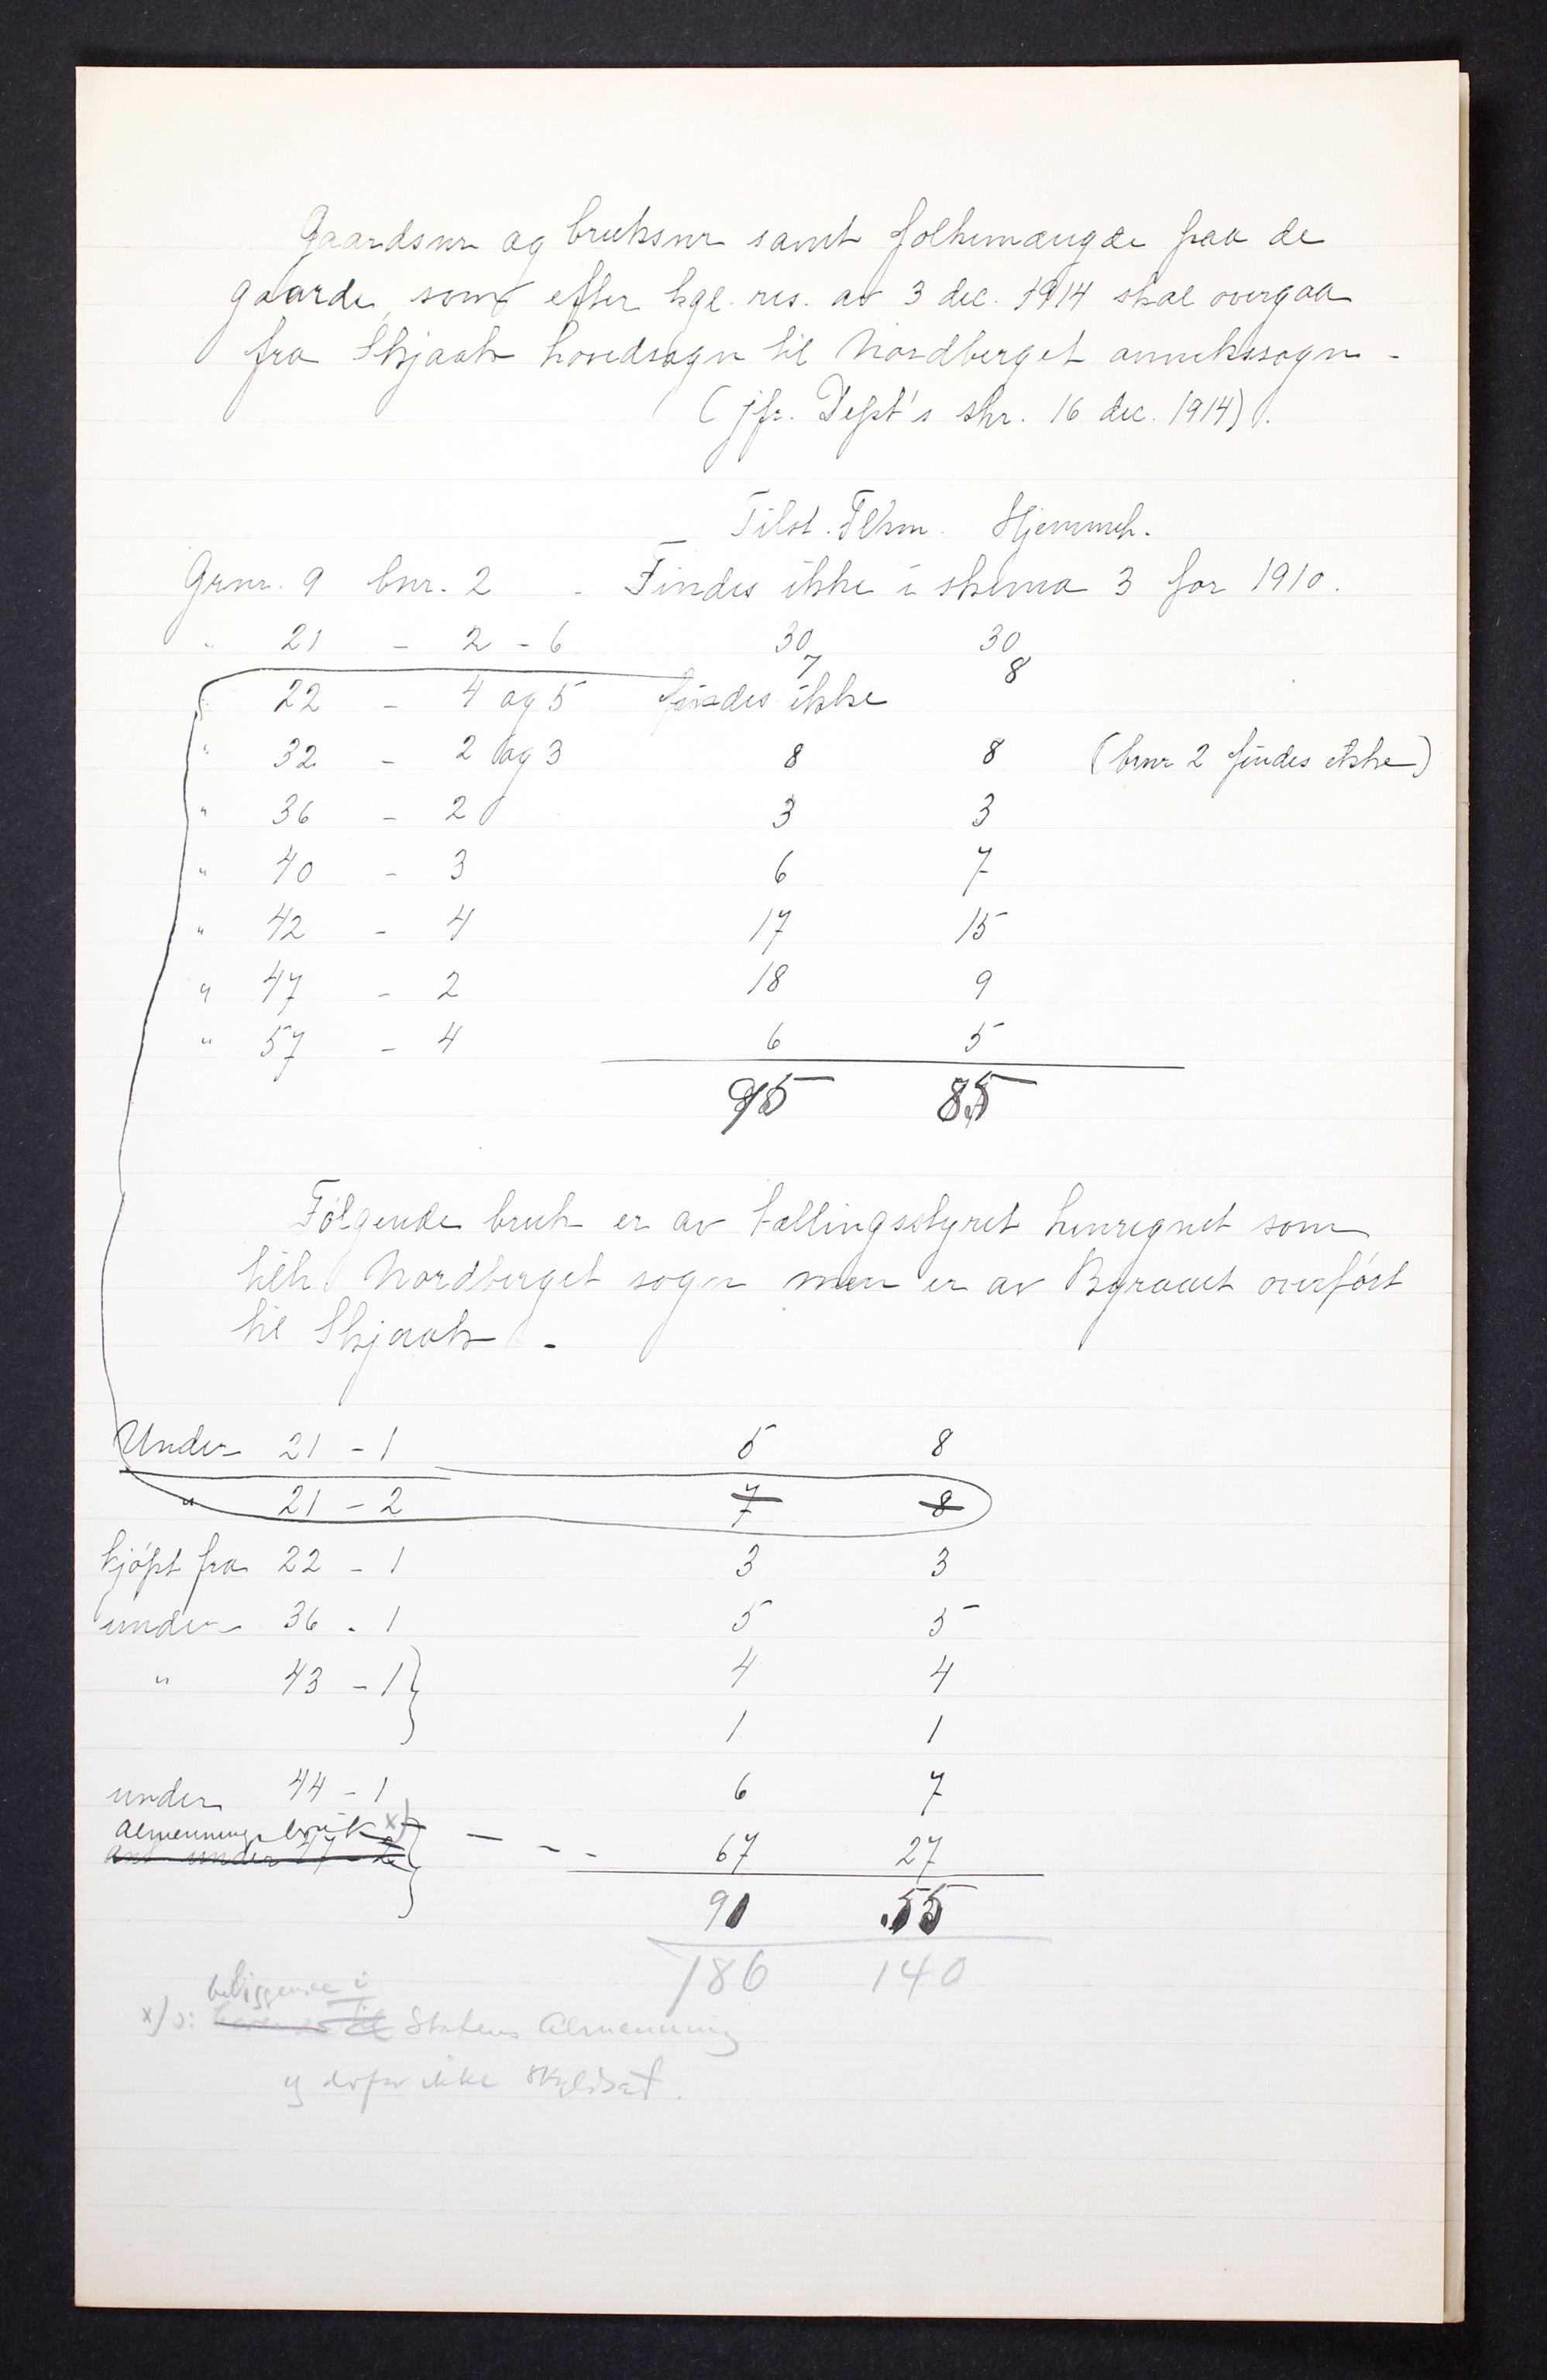 Gaardsnr og bruksnr samt folkemængde paa de
gaarde, som efter kgl. res. av 3 dec. 1914 skal overgaa
fra Skjaak hovedsogn til Nordberget annekssogn -
(jfr. Dept's skr. 16 dec. 1914).
Tilst. Flkm. Hjemmeh.
Grnr. 9 bnr. 2 - Findes ikke i skema 3 for 1910.
" 21 - 2 - 6 30 30
7 8
22 - 4 og 5 findes ikke
" 32 - 2 og 3 8 8 (bnr 2 findes ikke)
" 36 - 2 3 3
" 40 - 3 6 7
" 42 - 4 17 15
" 47 - 2 18 9
" 57 - 4 6 5
95 85
Følgende bruk er av tællingsstyret henregnet som
tilh. Nordberget sogn men er av Byraaet overført
til Skjaak -
Under 21 - 1 5 8
" 21 - 2 7 8
kjøpt fra 22 - 1 3 3
under 36 - 1 5 5
" 43 - 1 4 4
1 1
under 44 - 1 6 7
Almennings bruk x)
under 17 - 2 - - - 67 27
91 55
186 140
beliggende i
x) ɔ: Statens Almenning
og derfor ikke skyldsat.